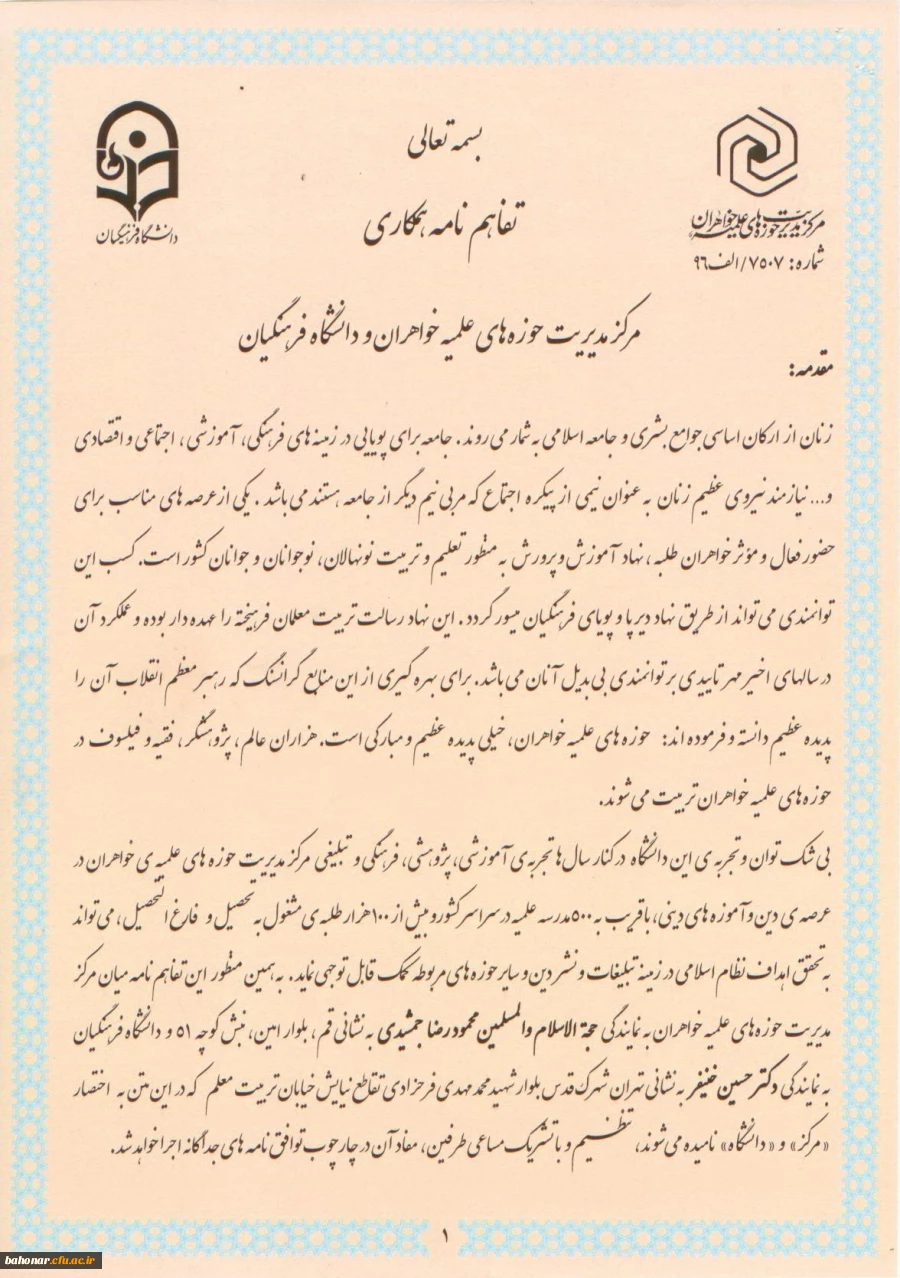 بسمه تعالی
تفاهم نامه همکاری
مرکز مدیریت حوزه های علمیه خواهران
دانشگاه فرهنگیان
شماره: ۷۵۰۷/الف۹۶
مرکز مدیریت حوزه های علمیه خواهران و دانشگاه فرهنگیان
مقدمه:
زنان از ارکان اساسی جوامع بشری و جامعه اسلامی به شمار می روند. جامعه برای پویایی در زمینه های فرهنگی، آموزشی، اجتماعی و اقتصادی
و... نیازمند نیروی عظیم زنان به عنوان نیمی از پیکره اجتماع که مربی نیم دیگر از جامعه هستند می باشد. یکی از عرصه های مناسب برای
حضور فعال و مؤثر خواهران طلبه، نهاد آموزش و پرورش به منظور تعلیم و تربیت نونهالان، نوجوانان و جوانان کشور است. کسب این
توانمندی می تواند از طریق نهاد دیرپا و پویای فرهنگیان میسور گردد. این نهاد رسالت تربیت معلمان فرهیخته را عهده دار بوده و عملکرد آن
در سالهای اخیر مهر تاییدی بر توانمندی بی بدیل آنان می باشد. برای بهره گیری از این منابع گرانسنگ که رهبر معظم انقلاب آن را
پدیده عظیم دانسته و فرموده اند: حوزه های علمیه خواهران، خیلی پدیده عظیم و مبارکی است. هزاران عالم، پژوهشگر، فقیه و فیلسوف در
حوزه های علمیه خواهران تربیت می شوند.
بی شک توان و تجربه ی این دانشگاه در کنار سال ها تجربه ی آموزشی، پژوهشی، فرهنگی و تبلیغی مرکز مدیریت حوزه های علمیه ی خواهران در
عرصه ی دین و آموزه های دینی، با قریب به ۵۰۰ مدرسه علمیه در سراسر کشور و بیش از ۱۰۰ هزار طلبه ی مشغول به تحصیل و فارغ التحصیل، می تواند
به تحقق اهداف نظام اسلامی در زمینه تبلیغات و نشر دین و سایر حوزه های مربوطه کمک قابل توجهی نماید. به همین منظور این تفاهم نامه میان مرکز
مدیریت حوزه های علمیه خواهران به نمایندگی حجة الاسلام والمسلمین محمود رضا جمشیدی به نشانی قم، بلوار امین، نبش کوچه ۵۱ و دانشگاه فرهنگیان
به نمایندگی دکتر حسین خنیفر به نشانی تهران شهرک قدس بلوار شهید محمد مهدی فرحزادی تقاطع نیایش خیابان تربیت معلم که در این متن به اختصار
«مرکز» و «دانشگاه» نامیده می شوند، تنظیم و با تشریک مساعی طرفین، مفاد آن در چارچوب توافق نامه های جداگانه اجرا خواهد شد.
۱
bahonar.cfu.ac.ir